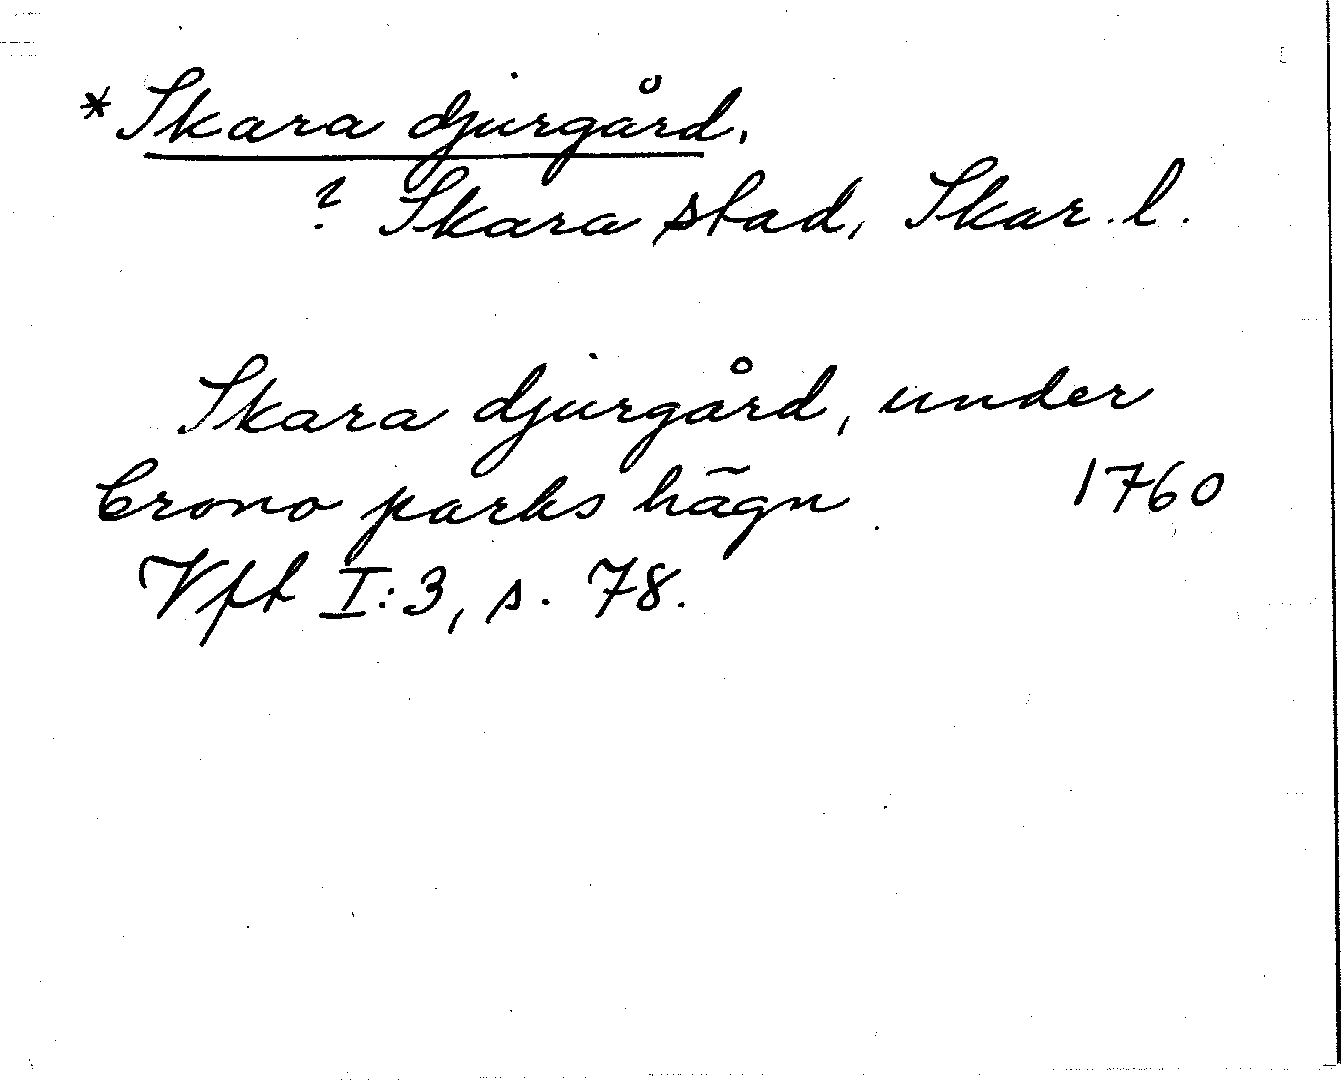 *Skara djurgård.
? Skara stad, Skar. l.
Skara djurgård, under
Crono parks hägn 1760
Vft I:3, s. 78.